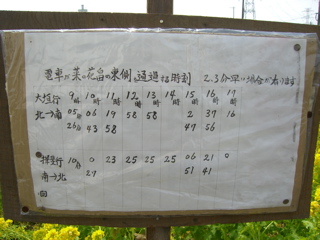 電車が菜の花畠の東側を通過する時刻 2.3分早い場合が有ります
大垣行 9時 10時 11時 12時 13時 14時 15時 16時 17時
北→南 05分 06 19 58 58 2 37 16
26分 43 58 47 56
揖斐行 10分 0 23 25 25 25 06 21 0
南→北 29 51 41